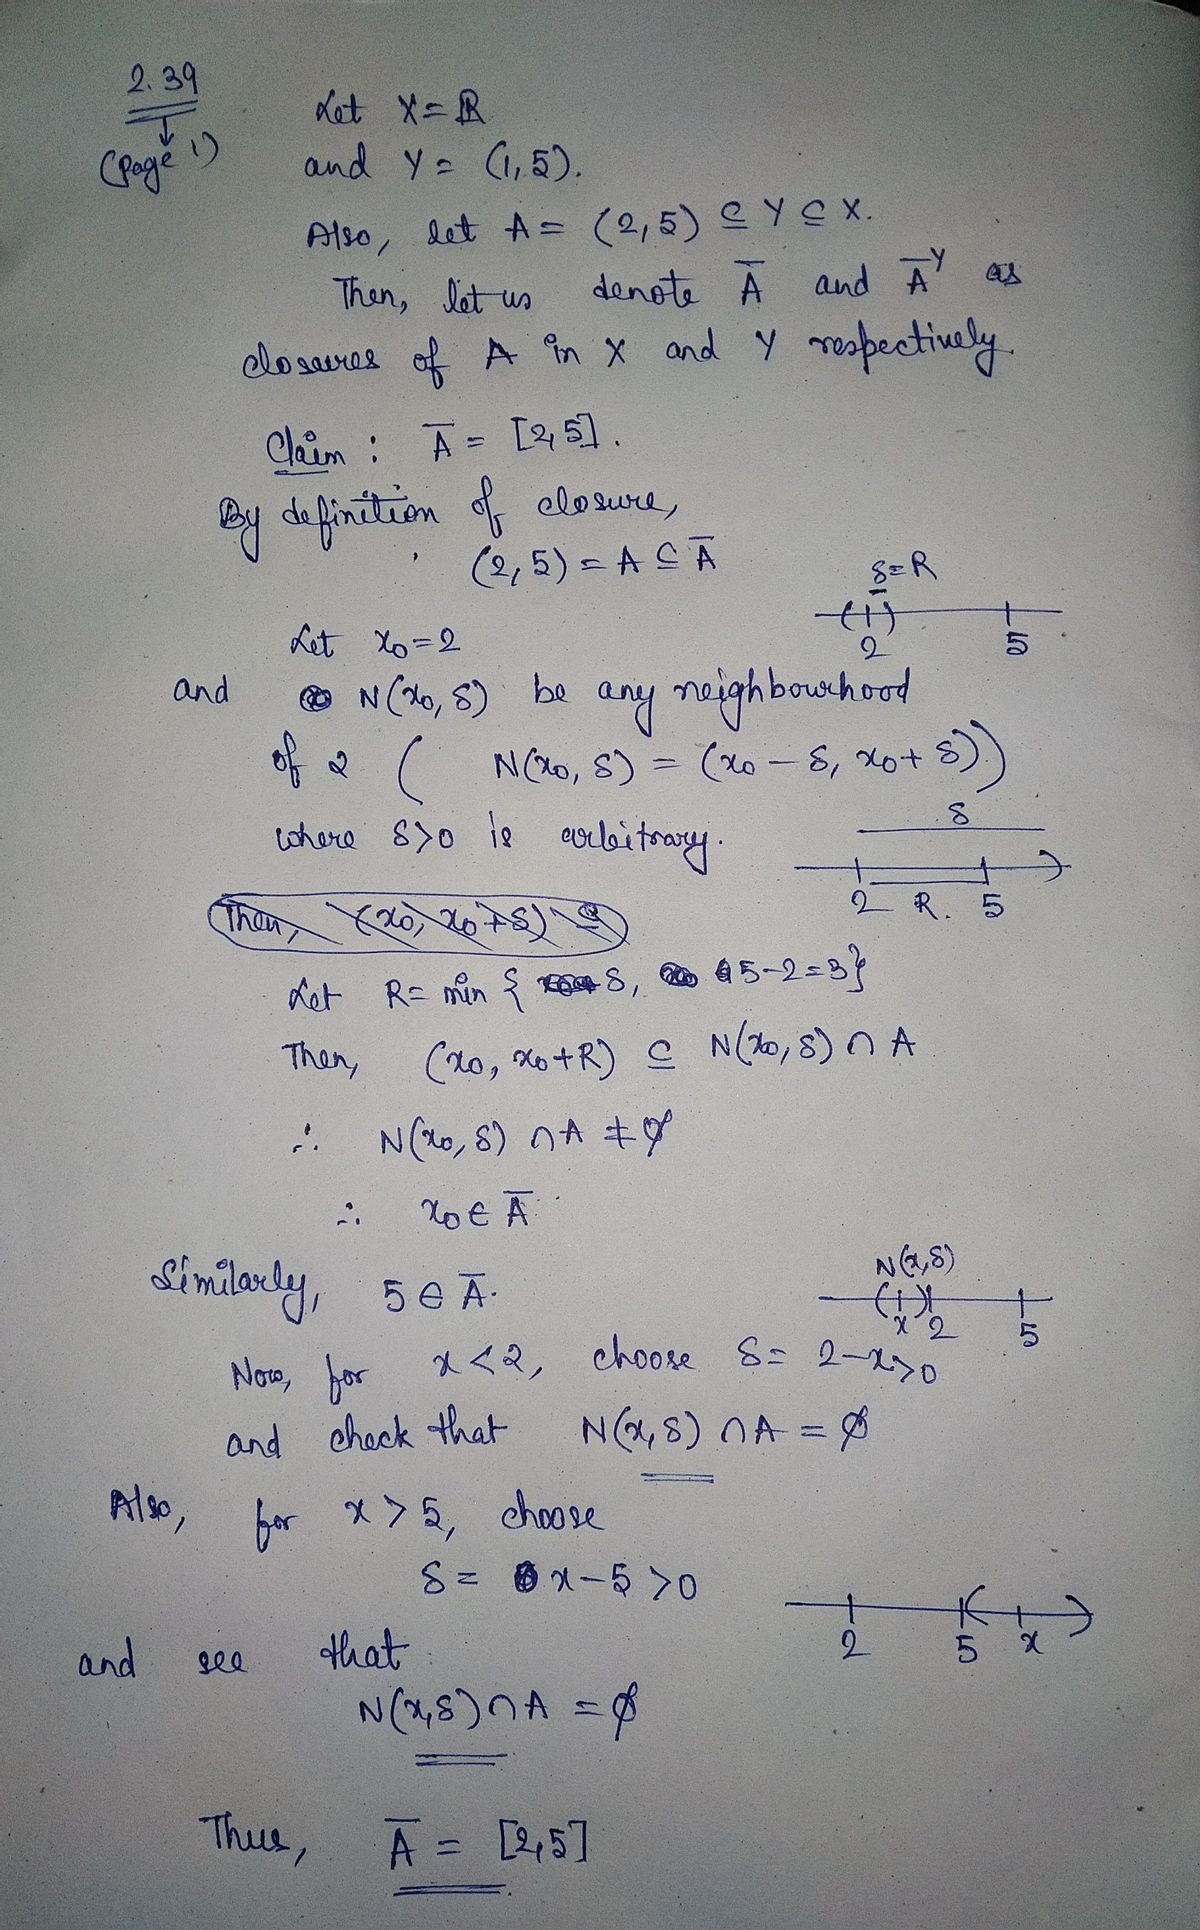 2.39
(page 1)
Let X = ℝ
and Y = (1,5).
Also, let A = (2,5) ⊆ Y ⊆ X.
Then, let us denote A̅ and A̅ʸ as
closures of A in X and Y respectively.
Claim : A̅ = [2,5].
By definition of closure,
(2,5) = A ⊆ A̅
δ=R
2 5
Let x₀=2
and N(x₀, δ) be any neighbourhood
of 2 ( N(x₀, δ) = (x₀ – δ, x₀+ δ))
where δ>0 is arbitrary.
δ
2 R. 5
Then, (x₀, x₀+δ) ⊆
Let R= min { δ, 5-2=3}
Then, (x₀, x₀+R) ⊆ N(x₀, δ) ∩ A
∴ N(x₀, δ) ∩ A ≠ ∅
∴ x₀ ∈ A̅
Similarly, 5 ∈ A̅.
N(x,δ)
x 2 5
Now, for x < 2, choose δ = 2-x>0
and check that N(x,δ) ∩ A = ∅
Also, for x > 5, choose
δ = x-5 >0
2 5 x
and see that
N(x,δ) ∩ A = ∅
Thus, A̅ = [2,5]